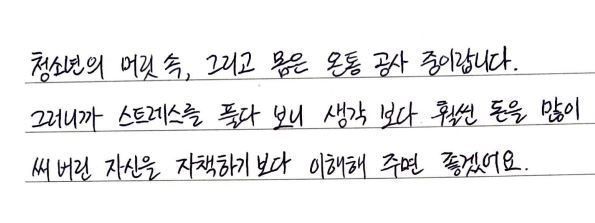 청소년의 머릿 속, 그리고 몸은 온통 공사 중이랍니다.
그러니까 스트레스를 풀다 보니 생각 보다 훨씬 돈을 많이
써 버린 자신을 자책하기 보다 이해해 주면 좋겠어요.